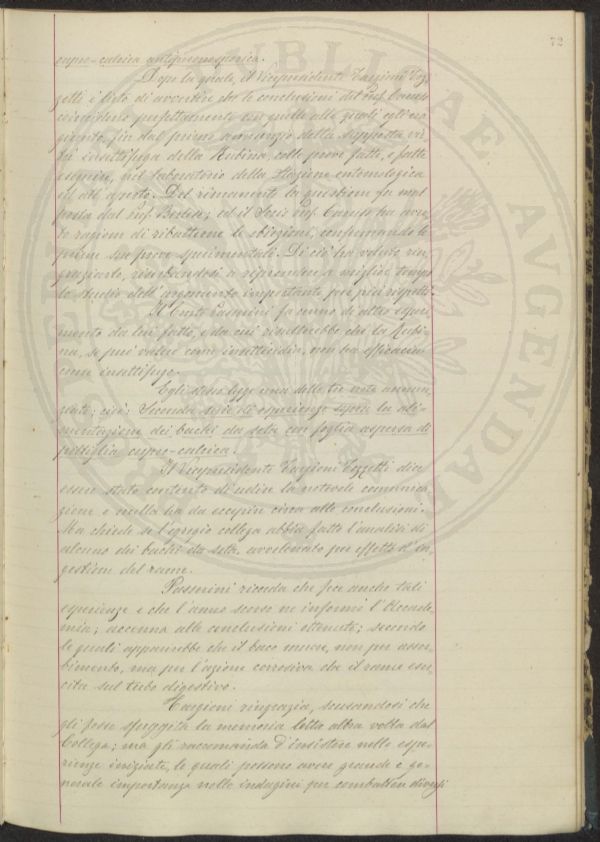 72
cupro-calcica antiperonosporica.
Dopo la quale, il Vicepresidente Targioni Toz
zetti è lieto di avvertire che le conclusioni del Prof. Canuso
coincidono perfettamente con quelle alle quali egli era
giunto, fin dal primo annunzio della supposta vir
tù insettifuga della Rubina, colle prove fatte, e fatte
eseguire, nel laboratorio della Stazione entomologica
ed all'aperto. Del rimanente la questione fu mol
posta dal Prof. Berlese; ed il Socio Prof. ha avu
to ragione di ribatterne le obiezioni, confermando le
prime sue prove sperimentali. Di ciò ha voluto rin
graziarlo, riserbandosi a riprendere a miglior tempo
lo studio dell'argomento importante per più rispetti.
Il Conte Passerini fa cenno di altro esperi
mento da lui fatto, e da cui risulterebbe che la Rubi
na, se può valere come insetticida, non ha efficacia
come insettifugo.
Egli stesso legge una delle tre note annun
ziate; cioè: Seconda serie di esperienze sopra la ali-
mentazione dei bachi da seta con foglia aspersa di
poltiglia cupro-calcica.
Il Vicepresidente Targioni Tozzetti dice
essere stato contento di udire la notevole comunica
zione e nulla ha da eccepire circa alle conclusioni.
Ma chiede se l'egregio collega abbia fatto l'analisi di
alcuno dei bachi da seta, avvelenato per effetto d'in
gestione del rame.
Passerini ricorda che fece anche tali
esperienze e che l'anno scorso ne informò l'Accade
mia; accenna alle conclusioni ottenute; secondo
le quali apparirebbe che il baco muore, non per assor
bimento, ma per l'azione corrosiva che il rame eser
cita sul tubo digestivo.
Targioni ringrazia, scusandosi che
gli fosse sfuggita la memoria letta altra volta dal
Collega; ma gli raccomanda d'insistere nelle espe
rienze iniziate, le quali possono avere grande e ge
nerale importanza nelle indagini per combattere diversi